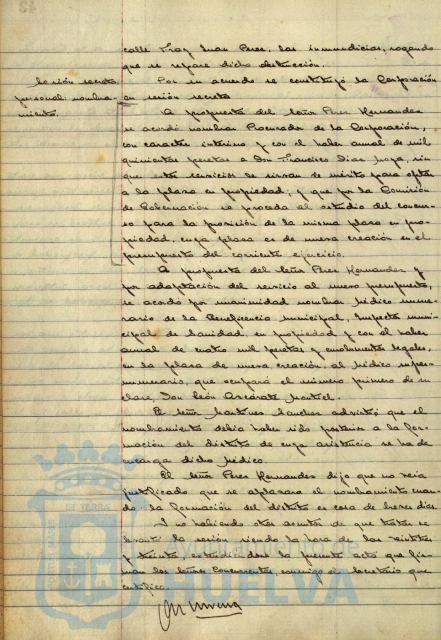 calle Fray Juan Perez, las inmundicias, rogando
que se repare dicha obstrucción.
Sesión secreta
personal: nombra-
miento.
Por su acuerdo se constituyó la Corporación
en sesión secreta
A propuesta del Señor Perez Hernandez
se acordó nombrar Procurador de la Corporación,
con caracter interino y con el haber anual de mil
quinientas pesetas a Don Francisco Dias sin
que estos servicios de sirvan de mérito para optar
a la plaza en propiedad; y que por la Comisión
de Gobernación se proceda al estudio del concur-
so para la provisión de la misma plaza en pro-
piedad, cuya plaza es de nueva creación en el
presupuesto del corriente ejercicio.
A propuesta del Señor Perez Hernandez y
por adaptación del servicio al nuevo presupuesto,
se acordó por unanimidad nombrar Médico nume-
rario de la Beneficencia municipal, Inspector muni-
cipal de Sanidad, en propiedad y con el haber
anual de cuatro mil pesetas y emolumentos legales,
en la plaza de nueva creación, al Médico super-
numerario, que ocupará el número primero de su
clase, Don León Azcárate Montiel.
El Señor Martinez Sanchez advirtió que el
nombramiento debía haber sido posterior a la for-
mación del distrito de cuya asistencia se ha de
encargar dicho Médico.
El Señor Perez Hernandez dijo que no veía
justificado que se aplazara el nombramiento cuan-
do la formación del distrito es cosa de breves días
Y no habiendo otros asuntos de que tratar se
levantó la sesión siendo la hora de las veintitres
y treinta, extendiendose la presente acta que fir-
man los Señores Concurrentes, conmigo el Secretario que
certifico.
HUELVA